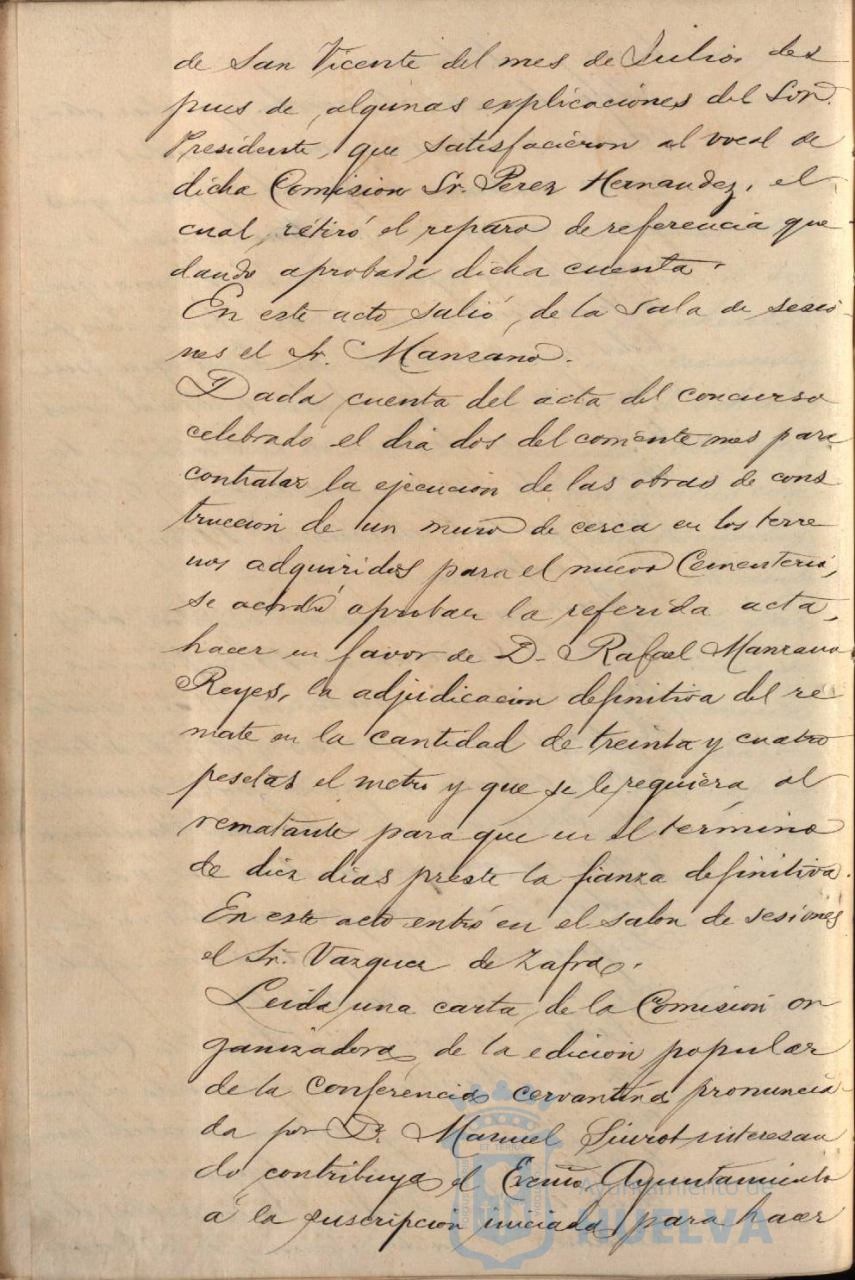 de San Vicente del mes de Julio, des
pues de algunas explicaciones del Sor.
Presidente, que satisfacieron al vocal de
dicha Comision Sr. Perez Hernandez, el
cual, retiró el reparo de referencia que
dando aprobada dicha cuenta.
En este acto salió, de la sala de sesio-
nes el Sr. Manzano.
Dada cuenta del acta del concurso
celebrado el dia dos del corriente mes para
contratar la ejecución de las obras de cons
trucción de un muro de cerca en los terre
nos adquiridos para el nuevo Cementerio,
se acordó aprobar la referida acta,
hacer en favor de D. Rafael Manzano
Reyes, la adjudicacion definitiva del re
mate en la cantidad de treinta y cuatro
pesetas el metro y que se le requiera al
rematante para que en el término
de diez dias preste la fianza definitiva.
En este acto entró en el salon de sesiones
el Sr. Vazquez de Zafra.
Leida una carta de la Comisión or
ganizadora de la edición popular
de la Conferencia cervantina pronuncia-
da por D. Manuel Siurot interesan
do contribuya el Excmo Ayuntamiento
a la suscripción iniciada para hacer
Ayuntamiento de
HUELVA